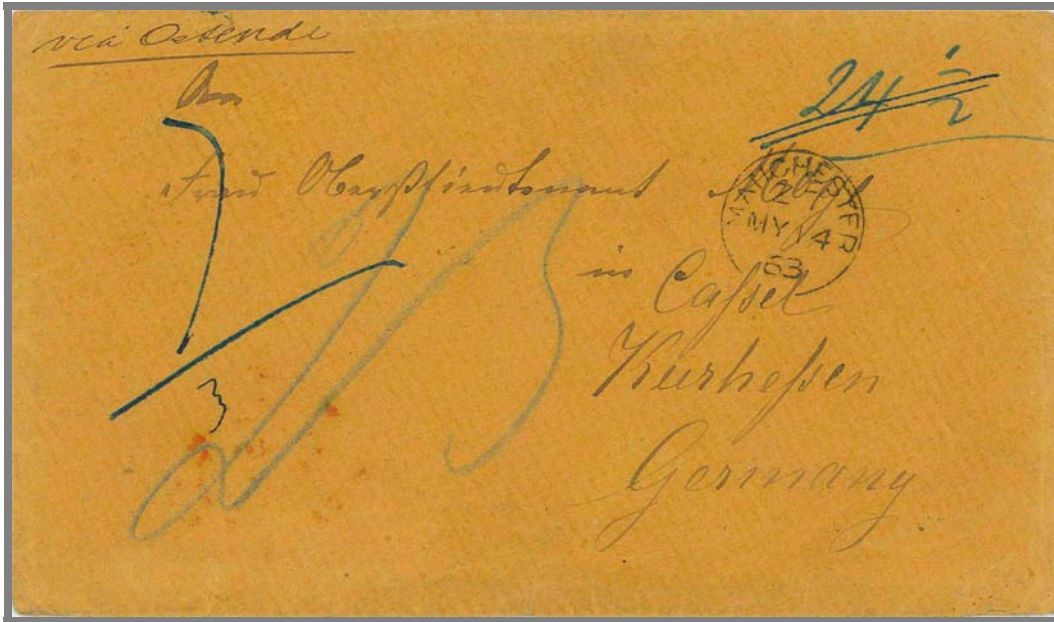 via Ostende
An
24 1/2
Frau Oberstlieutenant
MANCHESTER
MY 14
63
in Caſsel
Kurheſsen
Germany
7
3
23